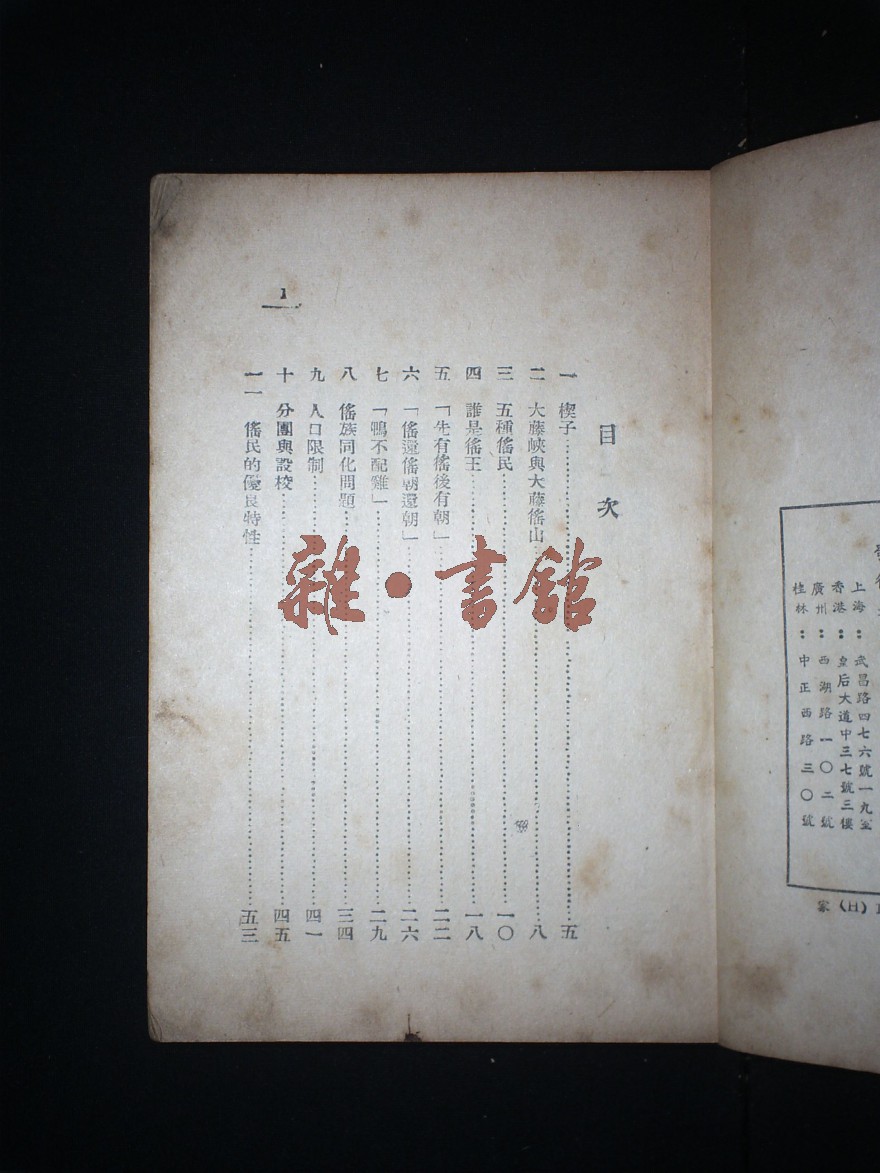 上海：武昌路四七六號一九室
香港：皇后大道中三七號三樓
廣州：西湖路一〇二號
桂林：中正西路三〇號
家（日）
目次
一 楔子……五
二 大藤峽與大藤傜山……八
三 五種傜民……一〇
四 誰是傜王……一八
五 「先有傜後有朝」……二二
六 「傜還傜朝還朝」……二六
七 「鴨不配雞」……二九
八 傜族同化問題……三四
九 人口限制……四一
十 分團與設校……四五
一一 傜民的優良特性……五三
1
雜·書館